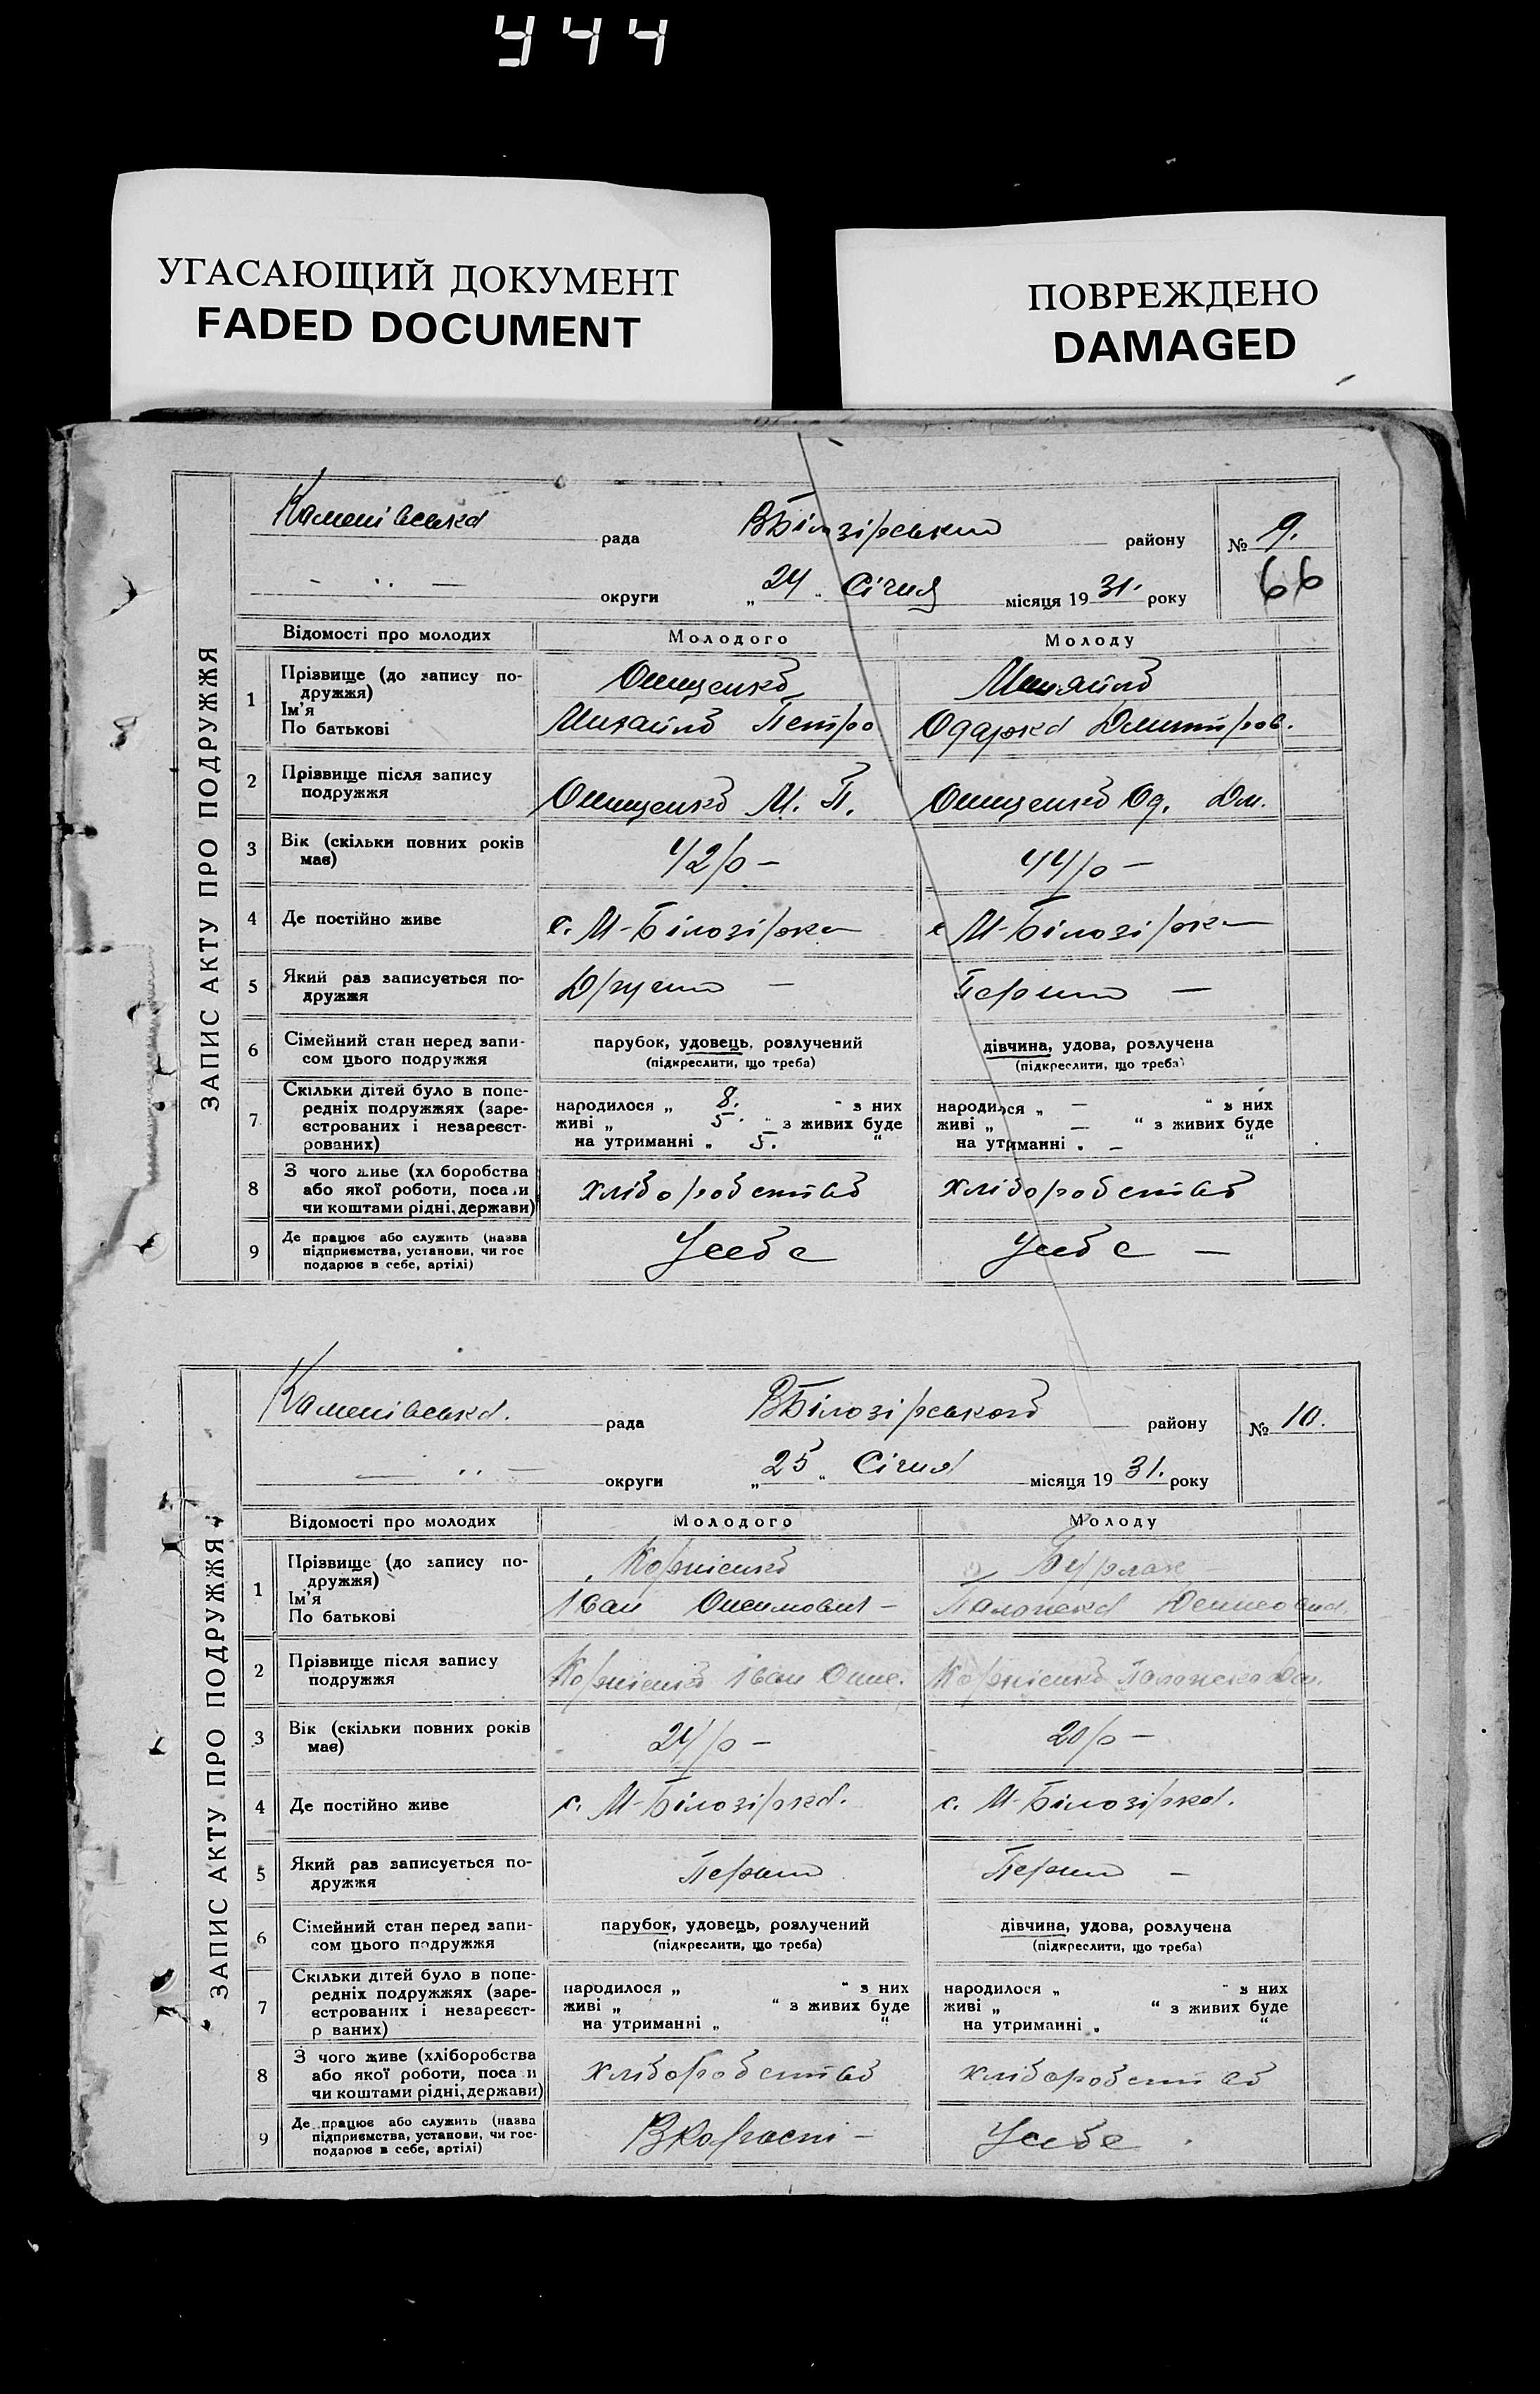 944
УГАСАЮЩИЙ ДОКУМЕНТ
FADED DOCUMENT
ПОВРЕЖДЕНО
DAMAGED
ЗАПИС АКТУ ПРО ПОДРУЖЖЯ
Каменівська рада ВБілозірський району № 9.
округи „24“ Січня місяця 1931. року 66
Відомості про молодих Молодого Молоду
1 Прізвище (до запису по-
дружжя)
Ім'я
По батькові
Онищенко
Михайло Петро
Одарка Дмитров.
2 Прізвище після запису
подружжя
Онищенко М. П. Онищенко Од. Дм.
3 Вік (скільки повних років
має)
42р - 44р -
4 Де постійно живе с. М-Білозірка с М-Білозірка
5 Який раз записується по-
дружжя
Другий - Перший -
6 Сімейний стан перед запи-
сом цього подружжя
парубок, удовець, розлучений
(підкреслити, що треба)
дівчина, удова, розлучена
(підкреслити, що треба)
7 Скільки дітей було в попе-
редніх подружжях (заре-
єстрованих і незареєст-
рованих)
народилося „ 8. “ з них
живі „ 5. “ з живих буде
на утриманні „ 5. “
народилося „ — “ з них
живі „ — “ з живих буде
на утриманні „ — “
8 З чого живе (хл боробства
або якої роботи, поса и
чи коштами рідні, держави)
хліборобство хліборобство
9 Де працює або служить (назва
підприємства, установи, чи гос
подарює в себе, артілі)
Усебе Усебе —
ЗАПИС АКТУ ПРО ПОДРУЖЖЯ
Каменівська. рада ВБілозірського району № 10.
округи „25“ Січня місяця 1931. року
Відомості про молодих Молодого Молоду
1 Прізвище (до запису по-
дружжя)
Ім'я
По батькові
Корнієнко Бурлак
Іван Онисимович - Палажка Денисовна.
2 Прізвище після запису
подружжя
Корнієнко Іван Корнієнко
3 Вік (скільки повних років
має)
24р - 20р -
4 Де постійно живе с. М-Білозірка. с. М-Білозірка.
5 Який раз записується по-
дружжя
Перший Перший -
6 Сімейний стан перед запи-
сом цього подружжя
парубок, удовець, розлучений
(підкреслити, що треба)
дівчина, удова, розлучена
(підкреслити, що треба)
7 Скільки дітей було в попе-
редніх подружжях (заре-
єстрованих і незареєст-
р ваних)
народилося „ “ з них
живі „ “ з живих буде
на утриманні „ “
народилося „ “ з них
живі „ “ з живих буде
на утриманні „ “
8 З чого живе (хліборобства
або якої роботи, поса и
чи коштами рідні, держави)
хліборобство хліборобство
9 Де працює або служить (назва
підприємства, установи, чи гос-
подарює в себе, артілі)
Усебе